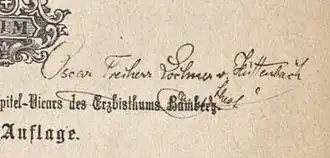 IM
Oscar Freiherr Lochner v. Hüttenbach
pitel-Vicars des Erzbisthums Bamberg.
Auflage.